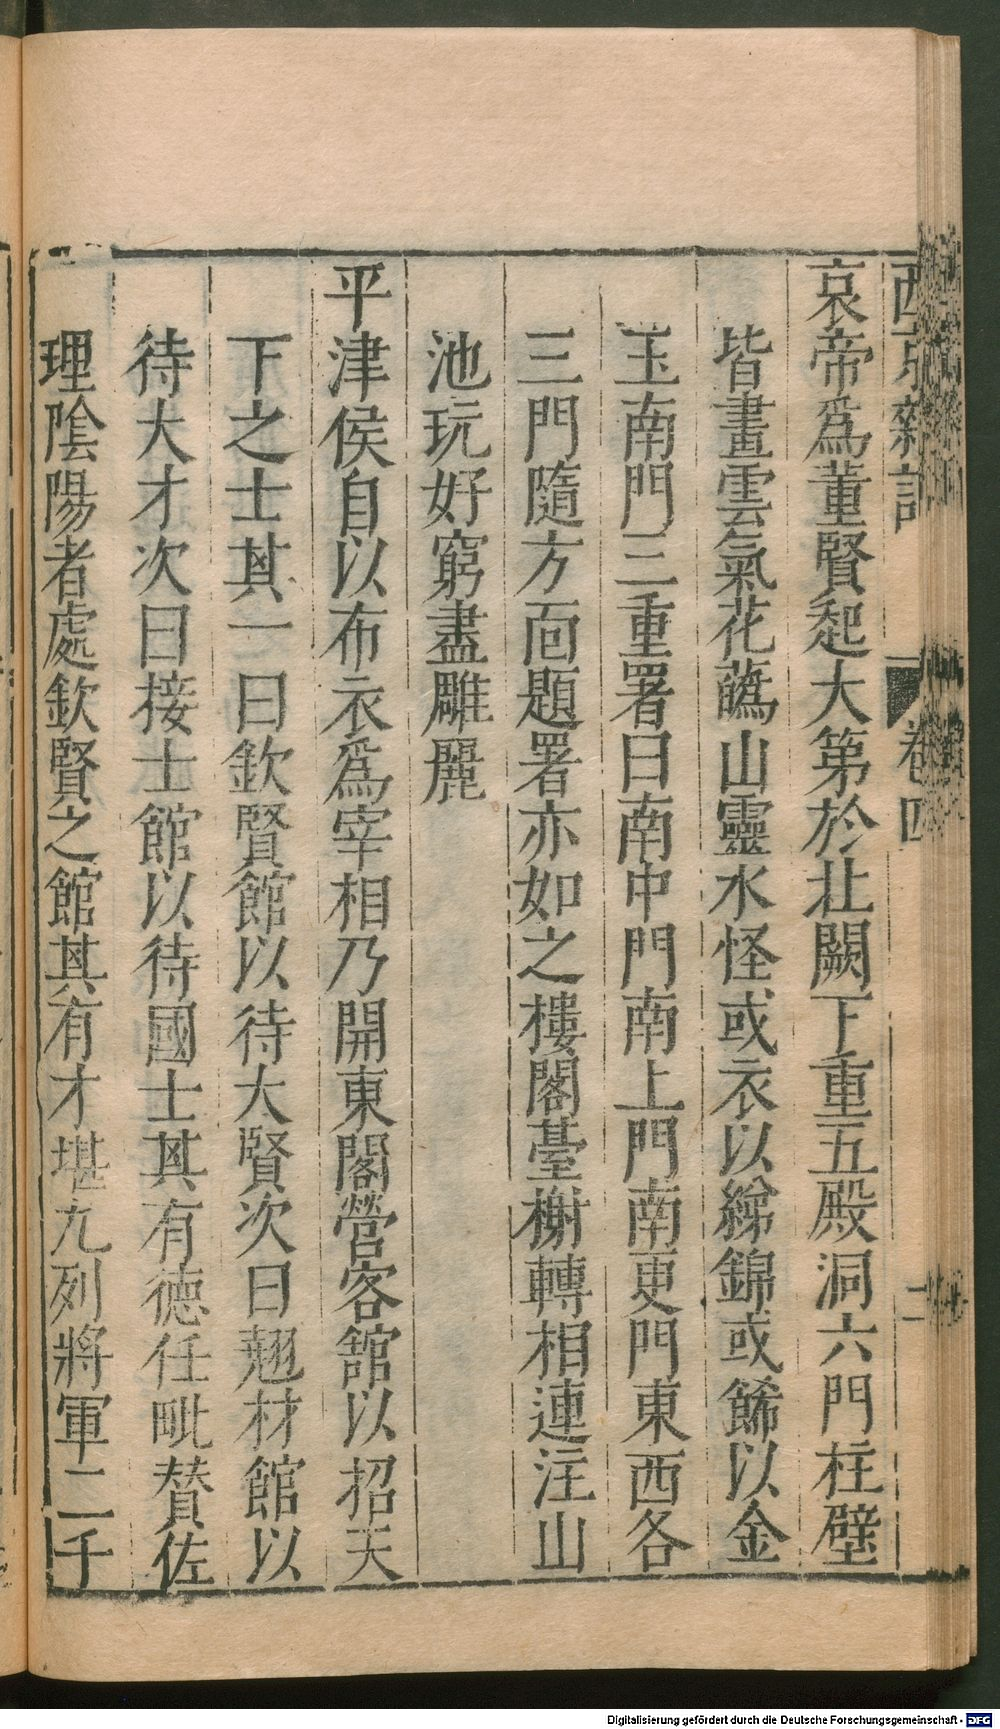 西京雜記 卷四 二
哀帝爲董賢起大第於北闕下重五殿洞六門柱壁
皆畫雲氣花蘤山靈水怪或衣以綈錦或餙以金
玉南門三重署曰南中門南上門南更門東西各
三門隨方面題署亦如之樓閣臺榭轉相連注山
池玩好窮盡雕麗
平津侯自以布衣爲宰相乃開東閣營客舘以招天
下之士其一曰欽賢館以待大賢次曰翹材館以
待大才次曰接士館以待國士其有德任毗賛佐
理陰陽者處欽賢之館其有才堪九列將軍二千
Digitalisierung gefördert durch die Deutsche Forschungsgemeinschaft - DFG